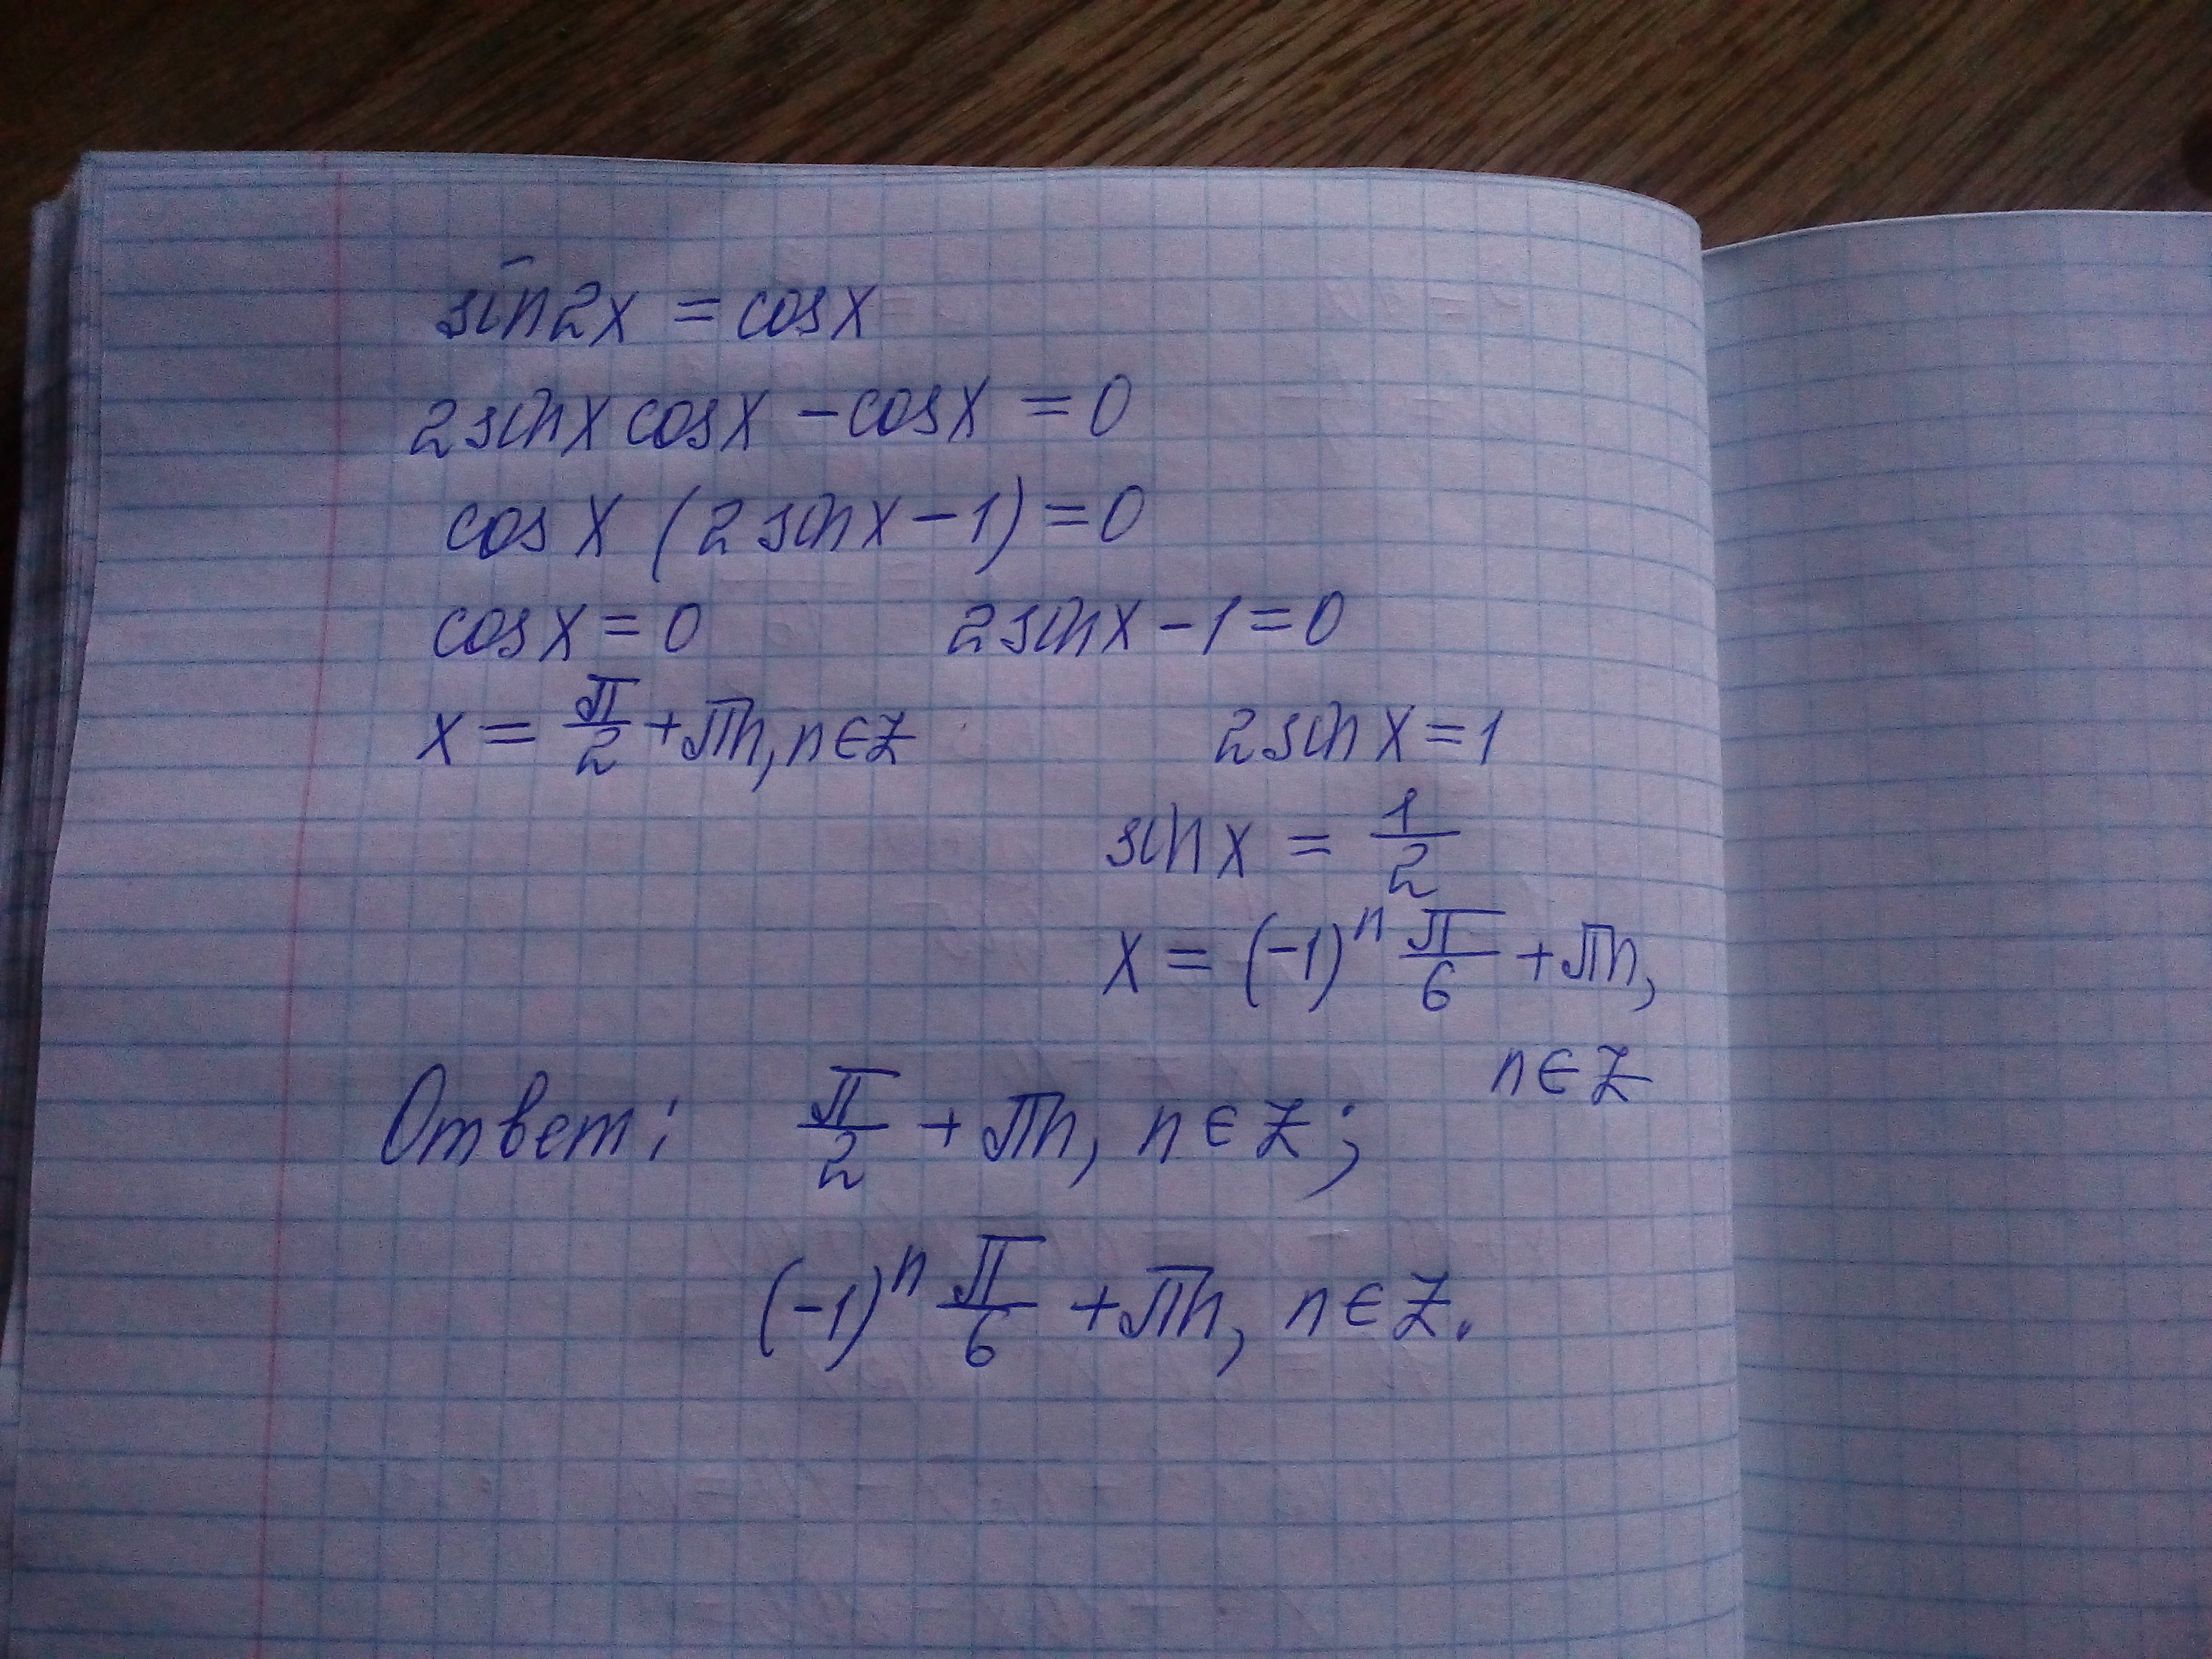 sin2x = cosx
2sinx cosx - cosx = 0
cosx (2sinx - 1) = 0
cosx = 0 2sinx - 1 = 0
x = π/2 + πn, n∈Z 2sinx = 1
sinx = 1/2
x = (-1)ⁿ π/6 + πn,
n∈Z
Ответ: π/2 + πn, n∈Z;
(-1)ⁿ π/6 + πn, n∈Z.